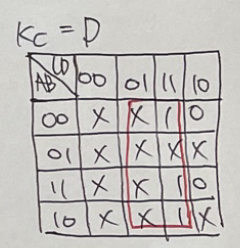 Kc = D
AB CD 00 01 11 10
00 X X 1 0
01 X X X X
11 X X 1 0
10 X X 1 X